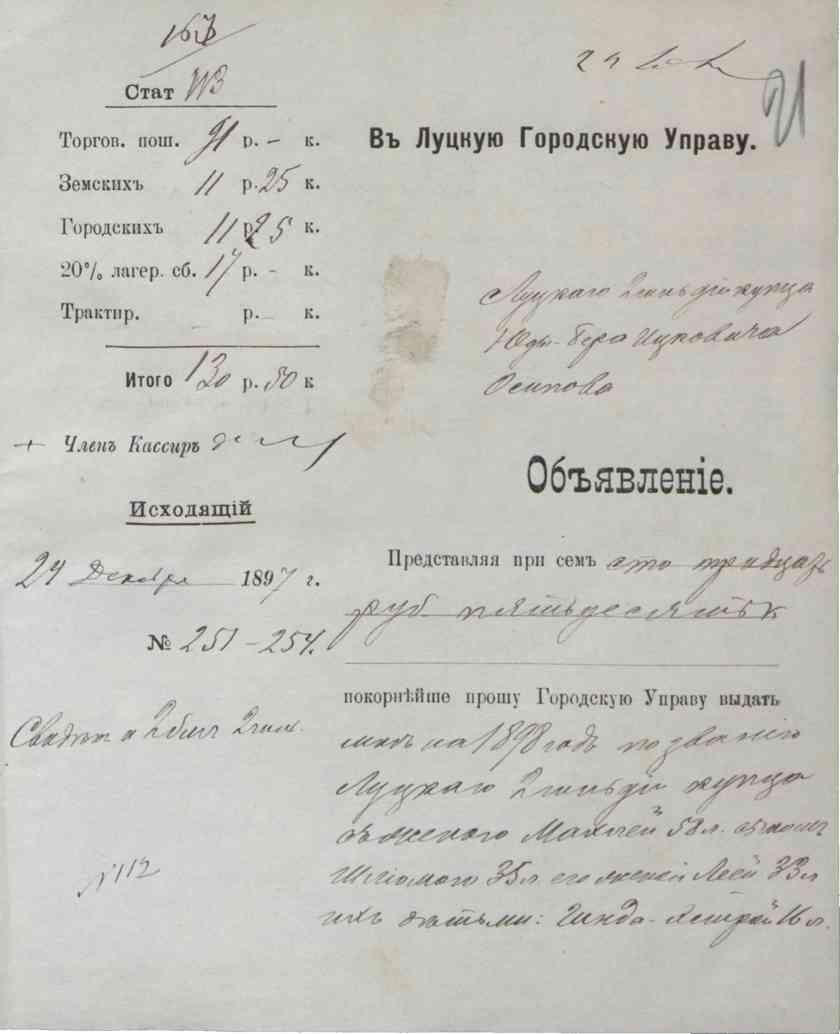 Стат
Торгов. пош. 91 р. - к.
Земскихъ 11 р. 25 к.
Городскихъ 11 р. 25 к.
20% лагер. сб. 17 р. - к.
Трактир. р. к.
Итого 130 р. 50 к
+ Членъ Кассиръ
Исходящій
24 Декабря 1897 г.
№ 251-254.
2 бил 2 гил.
N 112
21
Въ Луцкую Городскую Управу.
Луцкаго 2 гильдіи купца
Юды-Бера Ицковича
Осипова
Объявленіе.
Представляя при семъ сто тридцать
руб пятьдесять к
покорнѣйше прошу Городскую Управу выдать
мнѣ на 1898 годъ по званію
Луцкаго 2 гильдіи купца
съ женою Махлей 58 л. сыномъ
Шліомою 35 л. его женой Леей 33 л
ихъ дѣтьми: Гинда-Эстрой 16 л.